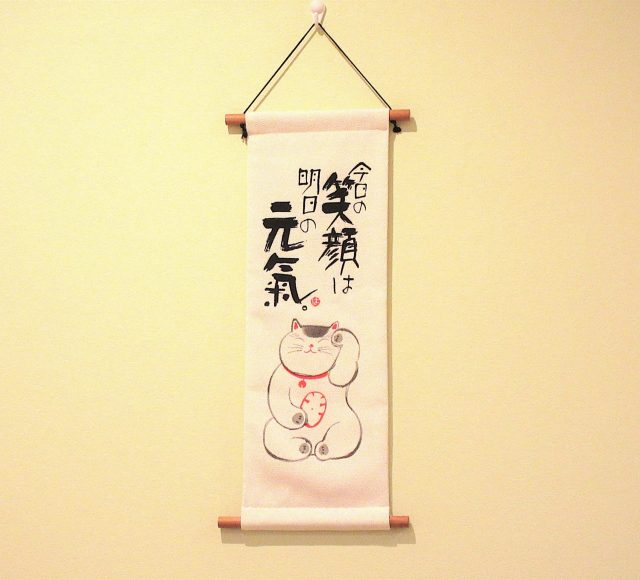 今日の
笑顔は
明日の
元氣。